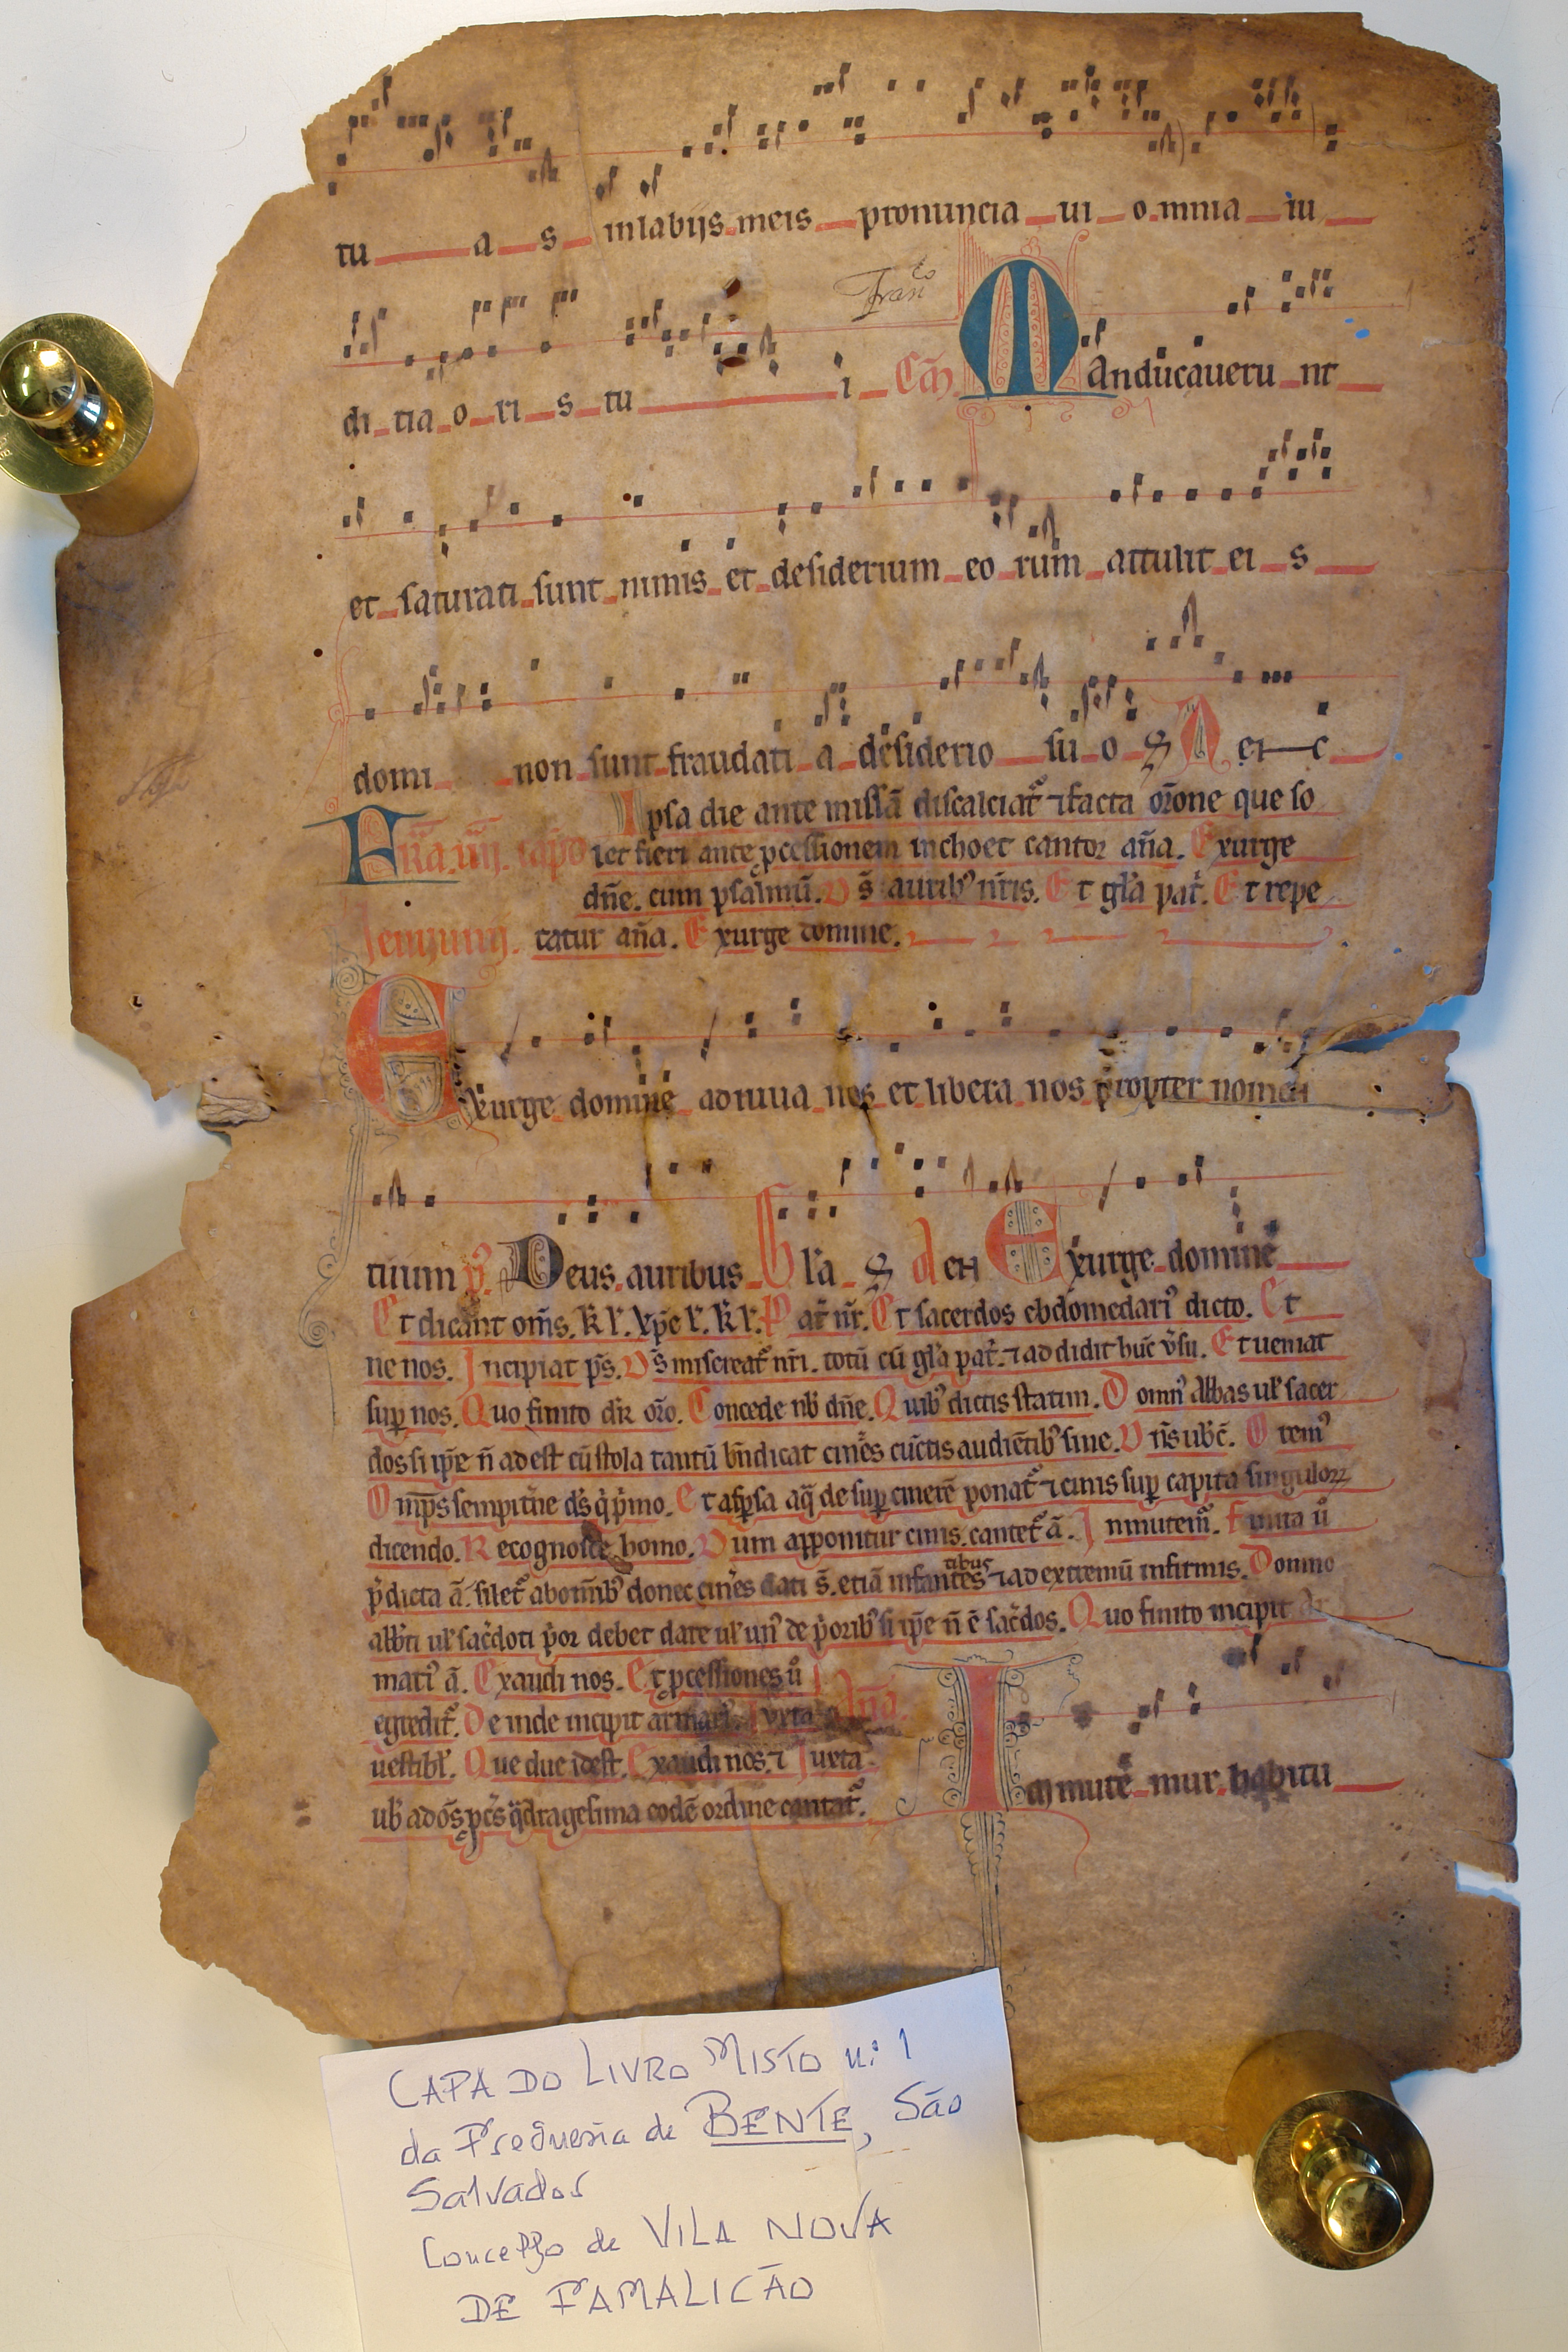 tu a s in labijs meis pronuncia ui o mnia iu
Fran.co
di cia o ri s tu i Cō Manducaueru nt
et saturati sunt nimis et desiderium eo rum attulit ei s
domi non sunt fraudati a desiderio su o S A ei c
Ipsa die ante missā discalciat᷑ ⁊ facta or̄one que so
Fr̄a. iiij. cap̄
let fieri ante ꝓcessionem inchoet cantor an̄a. Exurge
dn̄e. cum psalmū. Vs̄ auribꝰ nr̄is. Et gl̄a pat̄. Et repe
Jeiunij. tatur an̄a. Exurge domine.
Exurge domine adiuua nos et libera nos propter nomen
tuum p̄. Deus auribus Gl̄a S den Exurge domine
Et dicant om̄s. k̄l'. xp̄e l'. k̄l'. Pat̄ nr̄. Et sacerdos ebdomedariꝰ dicto. Et
ne nos. Incipiat ps̄. Ds̄ misereat᷑ nr̄i. totū cū gl̄a pat̄. ⁊ addidit huc v̄su. Et ueniat
suꝑ nos. Quo finito dr̄ or̄o. Concede nb̄ dn̄e. Quibꝰ dictis statim. Domnꝰ abbas ul' sacer
dos si ip̄e n̄ adest cū stola tantū bn̄dicat cin̄es cūctis audiētibꝰ sine. Dn̄s ub̄c̄. Oremꝰ
Om̄ps sempit̄ne ds̄ q̄ p̄mo. Et asꝑsa aq̄ desuꝑ cinerē ponat᷑ ⁊ cinis suꝑ capita singuloꝝ
dicendo. Recognosce homo. Dum apponitur cinis. cantet᷑ ā. Inmutem᷑. Finita u̾
p̄dicta ā. silet᷑ abom̄ibꝰ donec cin̄es dati s̄. etiā infantes tibus ⁊ ad extremū infirmis. Domno
abb̄ti ul' sac̄doti p̄or debet dare ul' unꝰ de p̄oribꝰ si ip̄e n̄ ē sac̄dos. Quo finito incipit Ar
mariꝰ ā. Exaudi nos. Et ꝓcessiones u̾
egredit᷑. Deinde incipit armariꝰ. Iuxta an̄a.
uestibl'. Que due idest. Exaudi nos. ⁊ Iuxta
ub̄ ad os̄ ꝓcs̄ q̄dragesima eodē ordine cantat᷑.
Immutē mur habitu
CAPA DO LIVRO MISTO n.º 1
da Freguesia de BENTE, São
Salvador
Concelho de VILA NOVA
DE FAMALICÃO